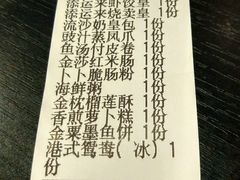 添运来虾饺皇 1份
添运来烧卖皇 1份
流沙奶皇包 1份
豉汁蒸凤爪 1份
鱼汤付皮卷 1份
金沙红米肠 1份
卜卜脆肠粉 1份
海鲜粥 1份
金枕榴莲酥 1份
香煎萝卜糕 1份
金粟墨鱼饼 1份
港式鸳鸯(冰)1
份